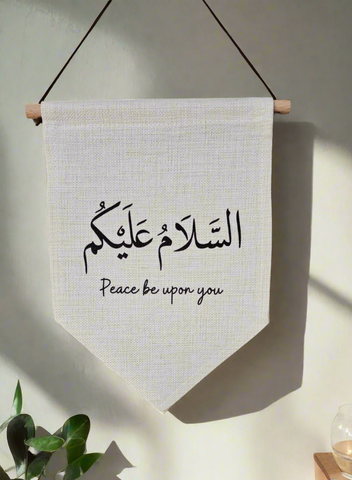 السَّلَامُ عَلَيْكُم
Peace be upon you